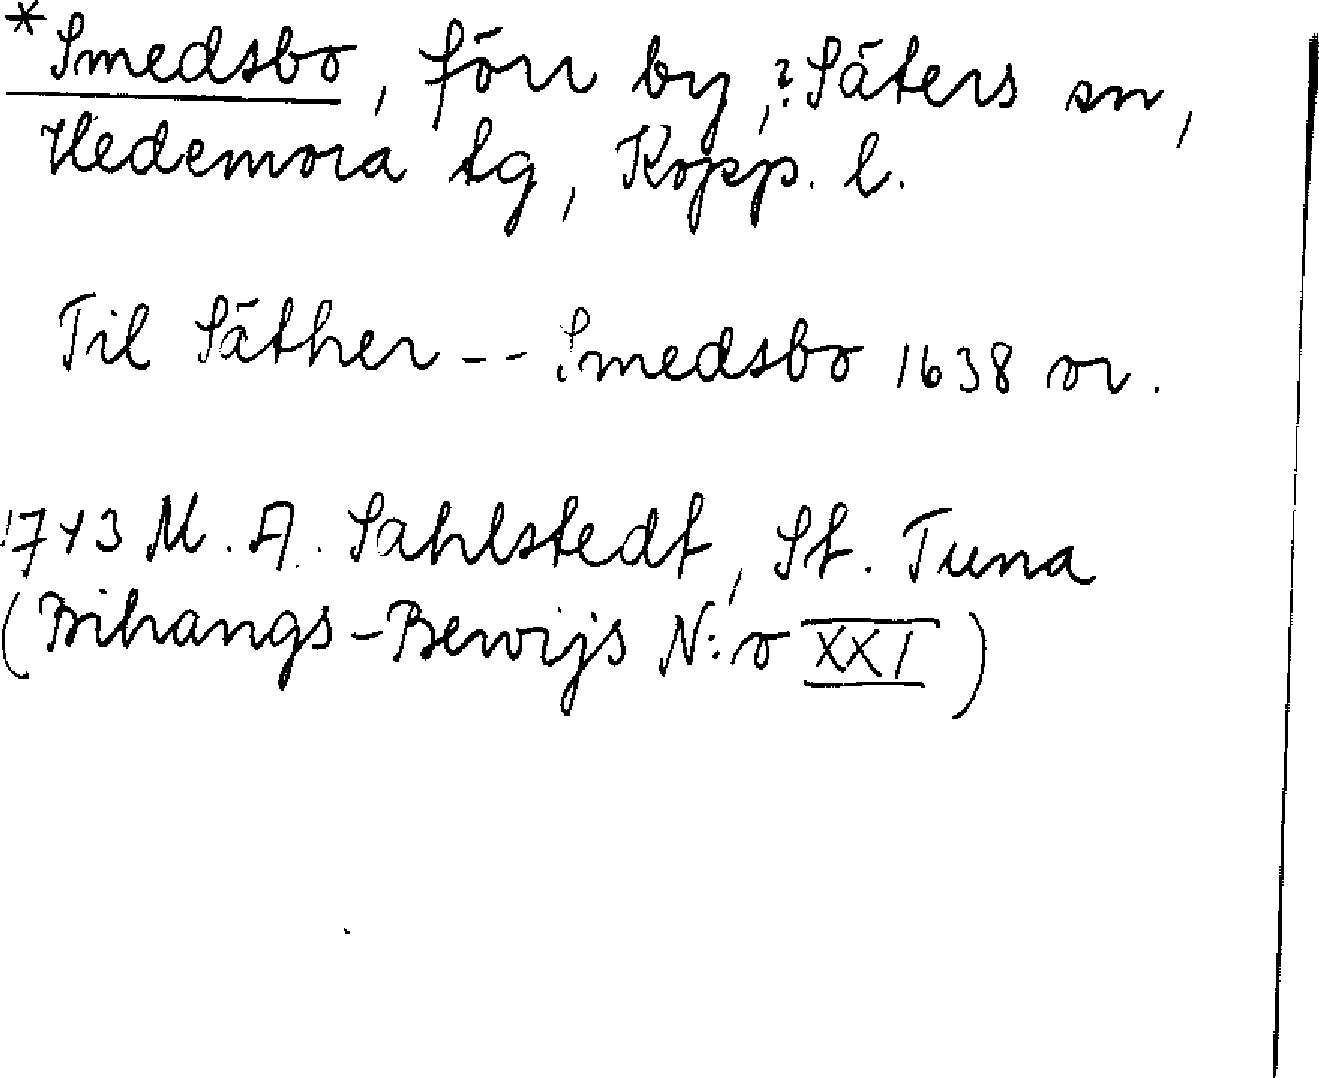 *Smedsbo, förr by, ?Säters sn,
Hedemora tg, Kopp. l.
Til Säther -- Smedsbo 1638 or.
1743 M. A. Sahlstedt, St. Tuna
(Bihangs-Bewijs N:o XXI)